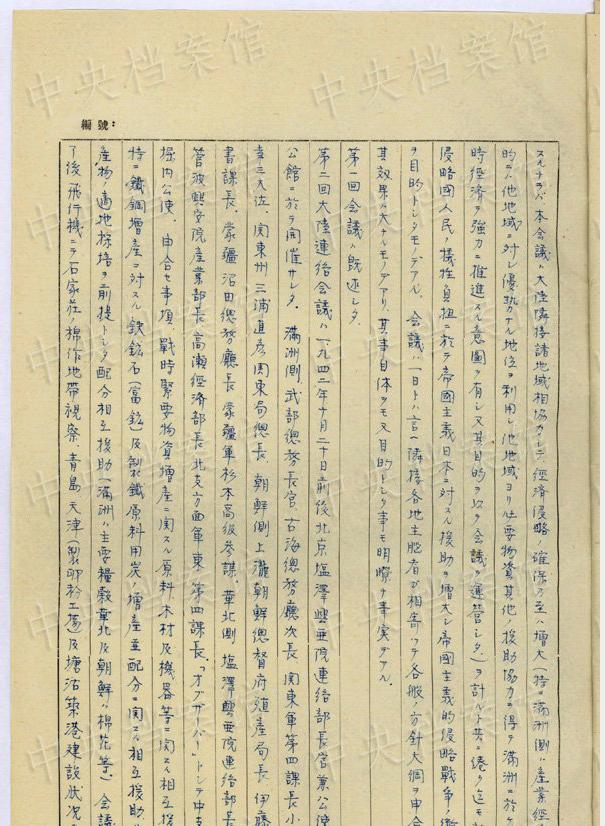 編號：
スルナラバ、本会議ハ大陸隣接諸地域相協力シテ経済侵略ノ確保乃至ハ増大(特ニ満洲側ハ産業経
的ニハ他地域ニ対シ優勢ナル地位ヲ利用シ他地域ヨリ必要物資其他ノ援助協力ヲ得テ満洲ニ於ケ
時経済ヲ強力ニ推進スル意図ヲ有シ又其目的ヲ以テ会議ヲ運営シタ)ヲ計ルト共ニ
侵略國人民ノ犠牲負担ニ於テ帝國主義日本ニ対スル援助ヲ増大シ帝國主義的侵略戦争ノ
ヲ目的トシタモノデアル。会議ハ一日トハ言ヘ隣接各地主脳者ガ相寄ツテ各般ノ方針大綱ヲ申合
其効果ハ大ナルモノデアリ、其事自体ヲモ又目的トシタ事モ明瞭ナ事実デアル。
第一回会議ハ既述シタ。
第二回大陸連絡会議ハ一九四二年十月二十日前後北京塩澤興亜院連絡部長官兼公使
公館ニ於テ開催サレタ。満洲側、武部総務長官、古海総務廳次長、関東軍第四課長小
幸三大佐、関東州三浦直彦関東局總長、朝鮮側上瀧朝鮮總督府殖産局長、伊藤
書課長、蒙疆沼田總務廳長、蒙疆軍杉本高級参謀、華北側塩澤興亜院連絡部長
菅波興亜院産業部長、高瀬經済部長、北支方面軍東第四課長、「オブザーバー」トシテ中支
堀内公使、申合セ事項、戦時緊要物資増産ニ関スル原料木材及機器等ニ関スル相互援
特ニ鐵鋼増産ニ対スル鉄鉱石(富鉱)及製鐵原料用炭ノ増産並配分ニ関スル相互援助、
産物ノ適地採培ヲ前提トシタ配分相互援助(満洲ハ主要糧穀華北及朝鮮ハ棉花等)会議
了後飛行機ニテ石家荘ノ棉作地帯視察、青島天津(製卵粉工場)及塘沽築港建設状况
中央档案馆